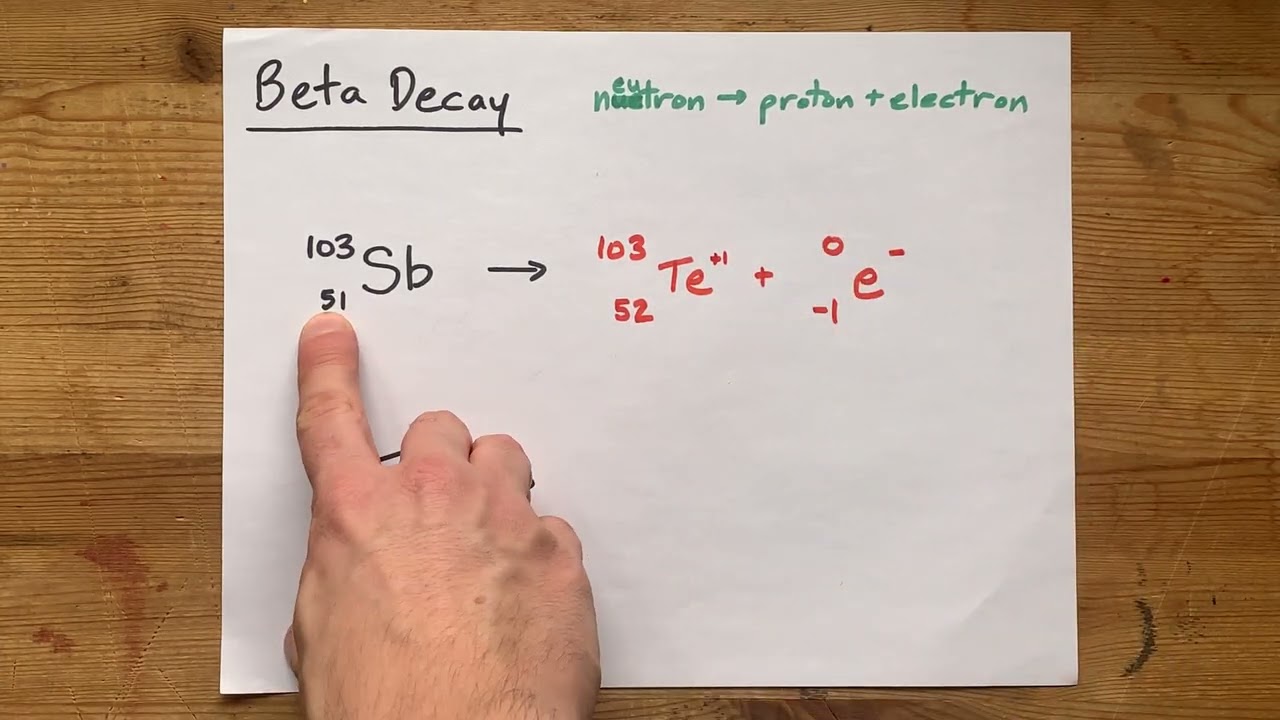 Beta Decay
neutron → proton + electron
¹⁰³₅₁Sb → ¹⁰³₅₂Te⁺¹ + ⁰₋₁e⁻